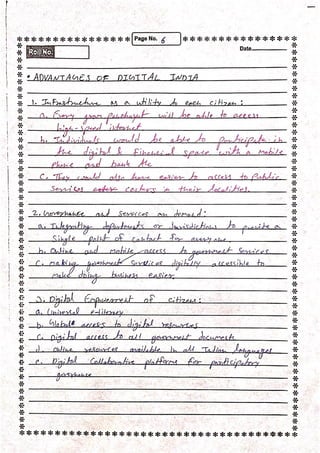 Page No. 6
Roll No.
Date
* ADVANTAGES OF DIGITAL INDIA
1. Infrastructure as a utility to each citizen:
a. Every gram panchayat will be able to access
high-speed internet
b. Individuals would be able to participate in
the digital & financial space with a mobile
phone and bank A/c
c. They would also have easier to access to Public
Services centers in their localities.
2. Governance and Services on demand:
a. Integrating departments or Jurisdictions to provide a
Single point of contact for everyone.
b. Online and mobile access to government Services
c. making government Services digitally accessible to
make doing business easier.
3. Digital Empowerment of citizens:
a. Universal e-literacy
b. Global access to digital resources
c. Digital access to all government documents
d. online resources available in all Indian languages
e. Digital Collaborative platforms for participatory
governance